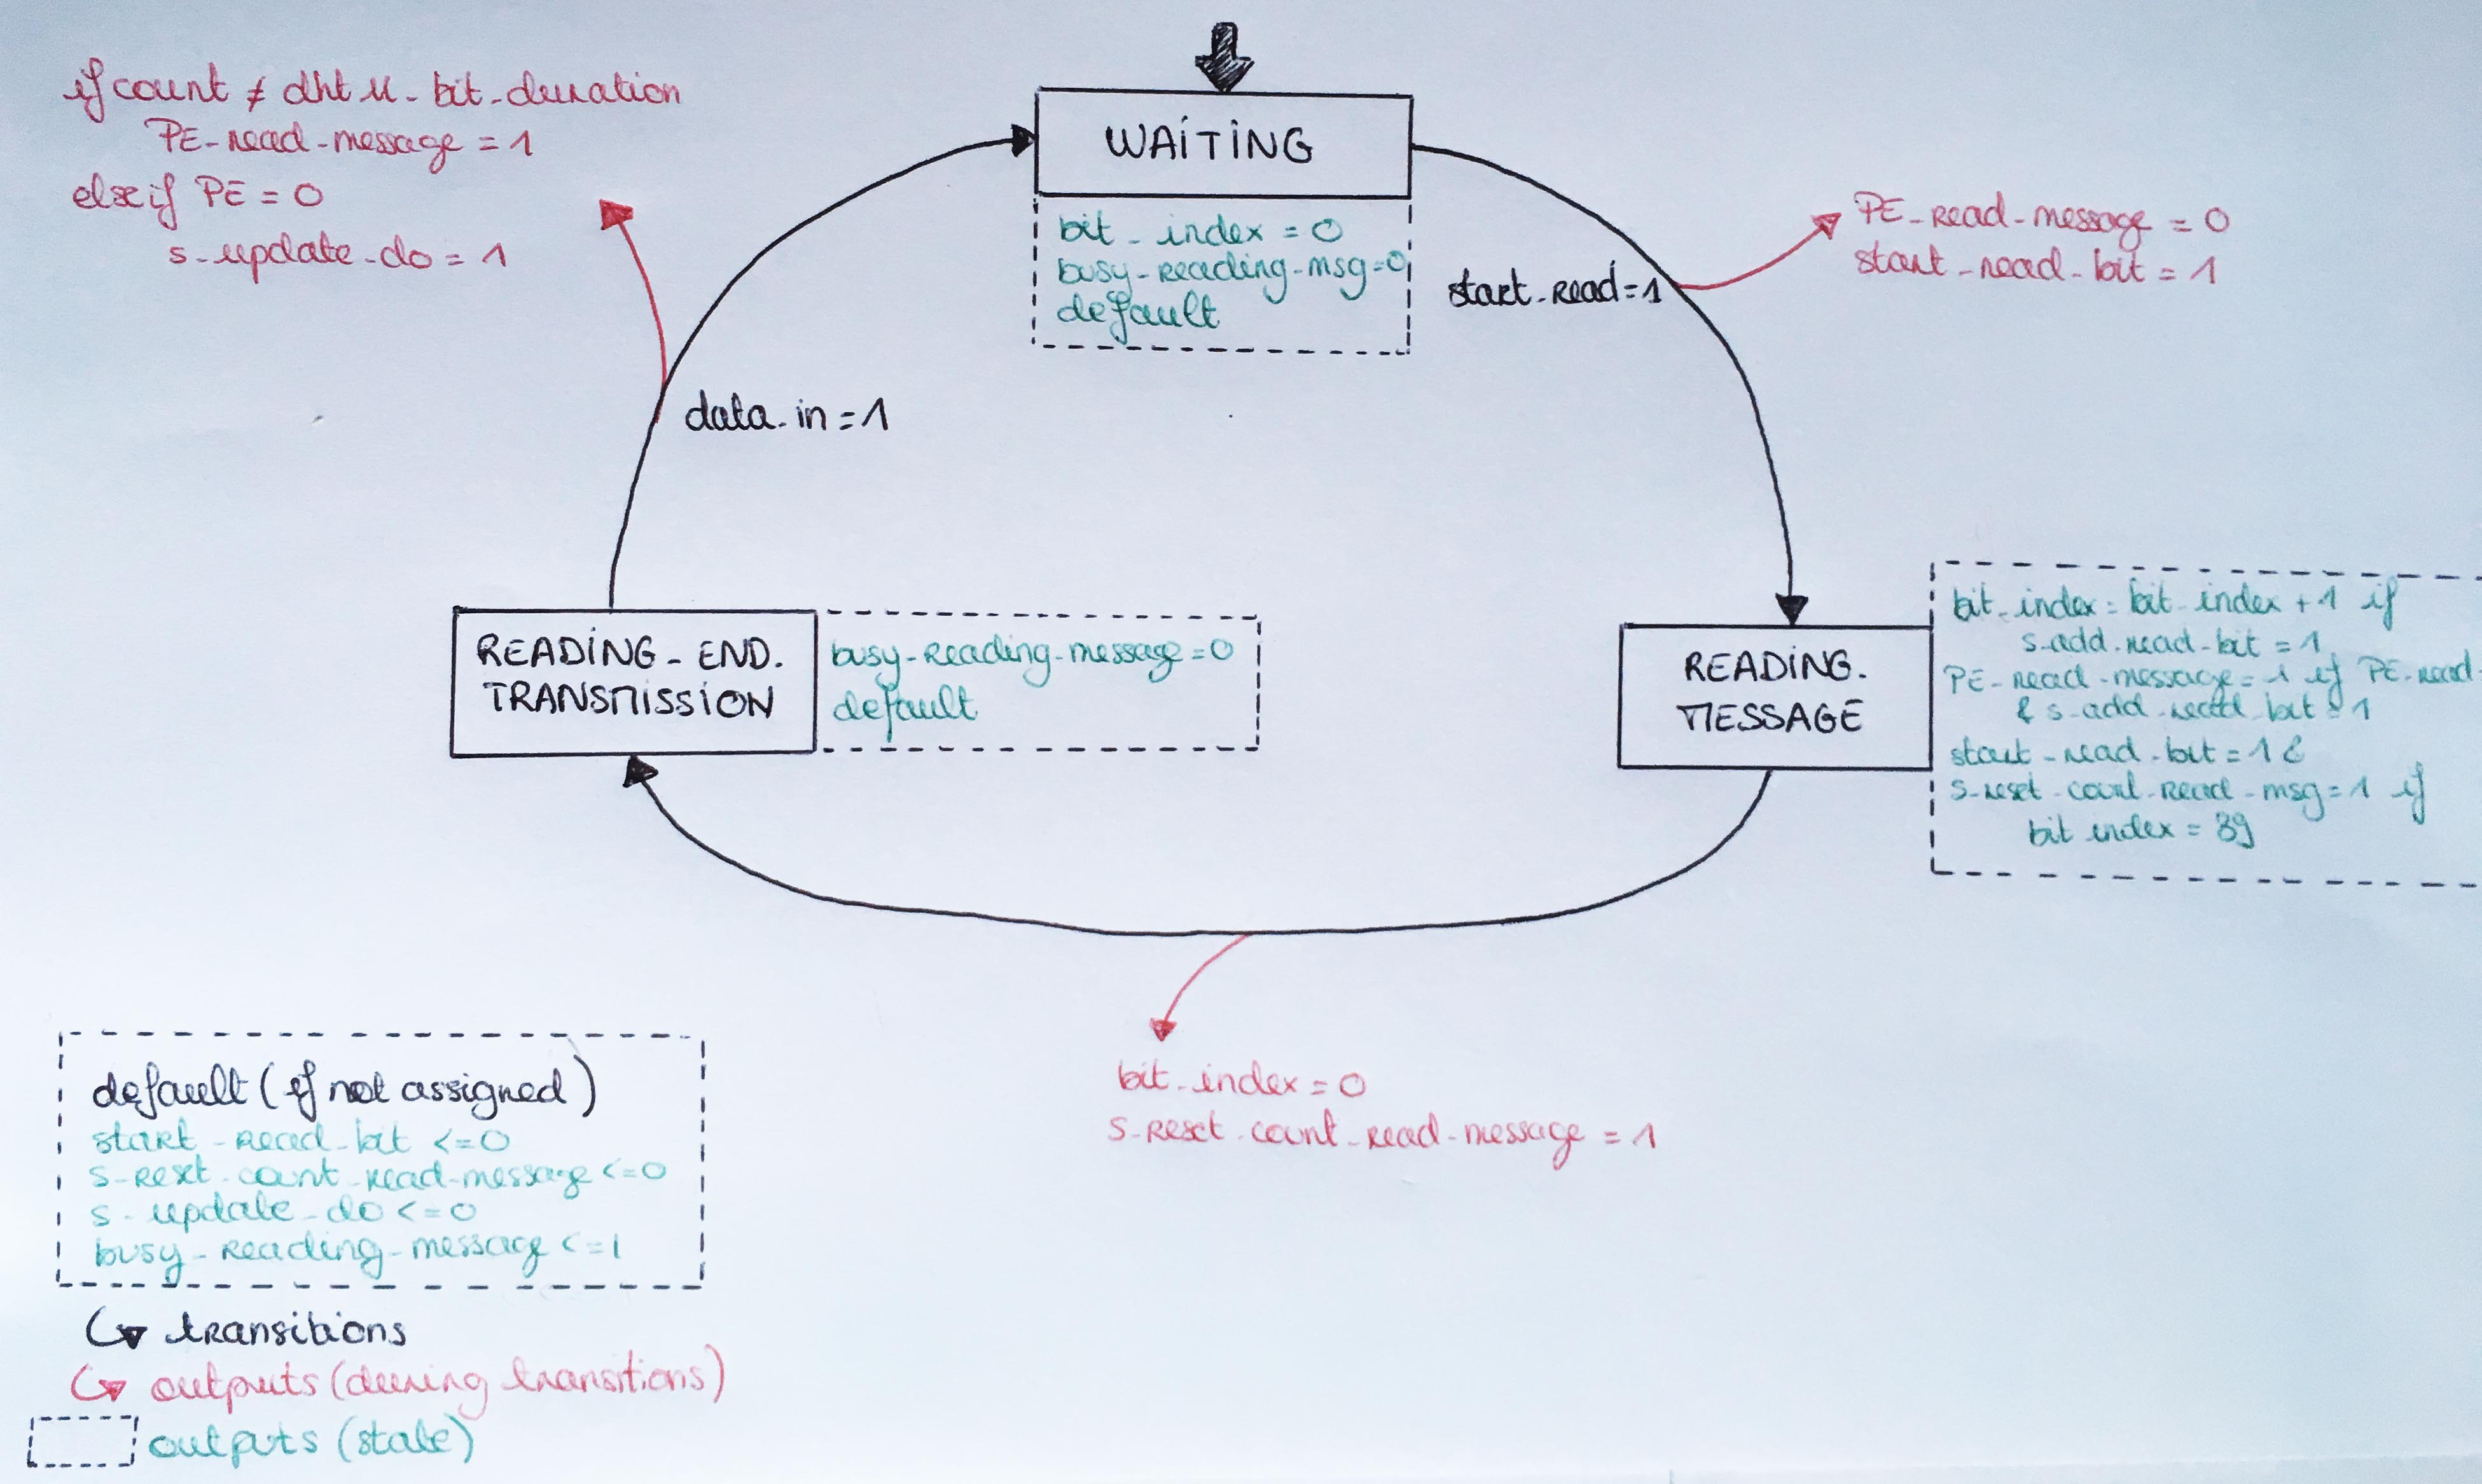 if count ≠ dht11_bit_duration
PE_read_message = 1
else if PE = 0
s_update_do = 1
WAITING
bit_index = 0
busy_reading_msg=0
default
start_read=1
PE_read_message = 0
start_read_bit = 1
data_in = 1
READING_END_
TRANSMISSION
busy_reading_message = 0
default
READING_
MESSAGE
bit_index = bit_index + 1 if
s_add_read_bit = 1
PE_read_message = 1 if PE_read_
& s_add_read_bit = 1
start_read_bit = 1 &
s_reset_count_read_msg = 1 if
bit index = 39
bit_index = 0
s_reset_count_read_message = 1
default (if not assigned)
start_read_bit <=0
s_reset_count_read_message <=0
s_update_do <=0
busy_reading_message <=1
transitions
outputs (during transitions)
outputs (state)